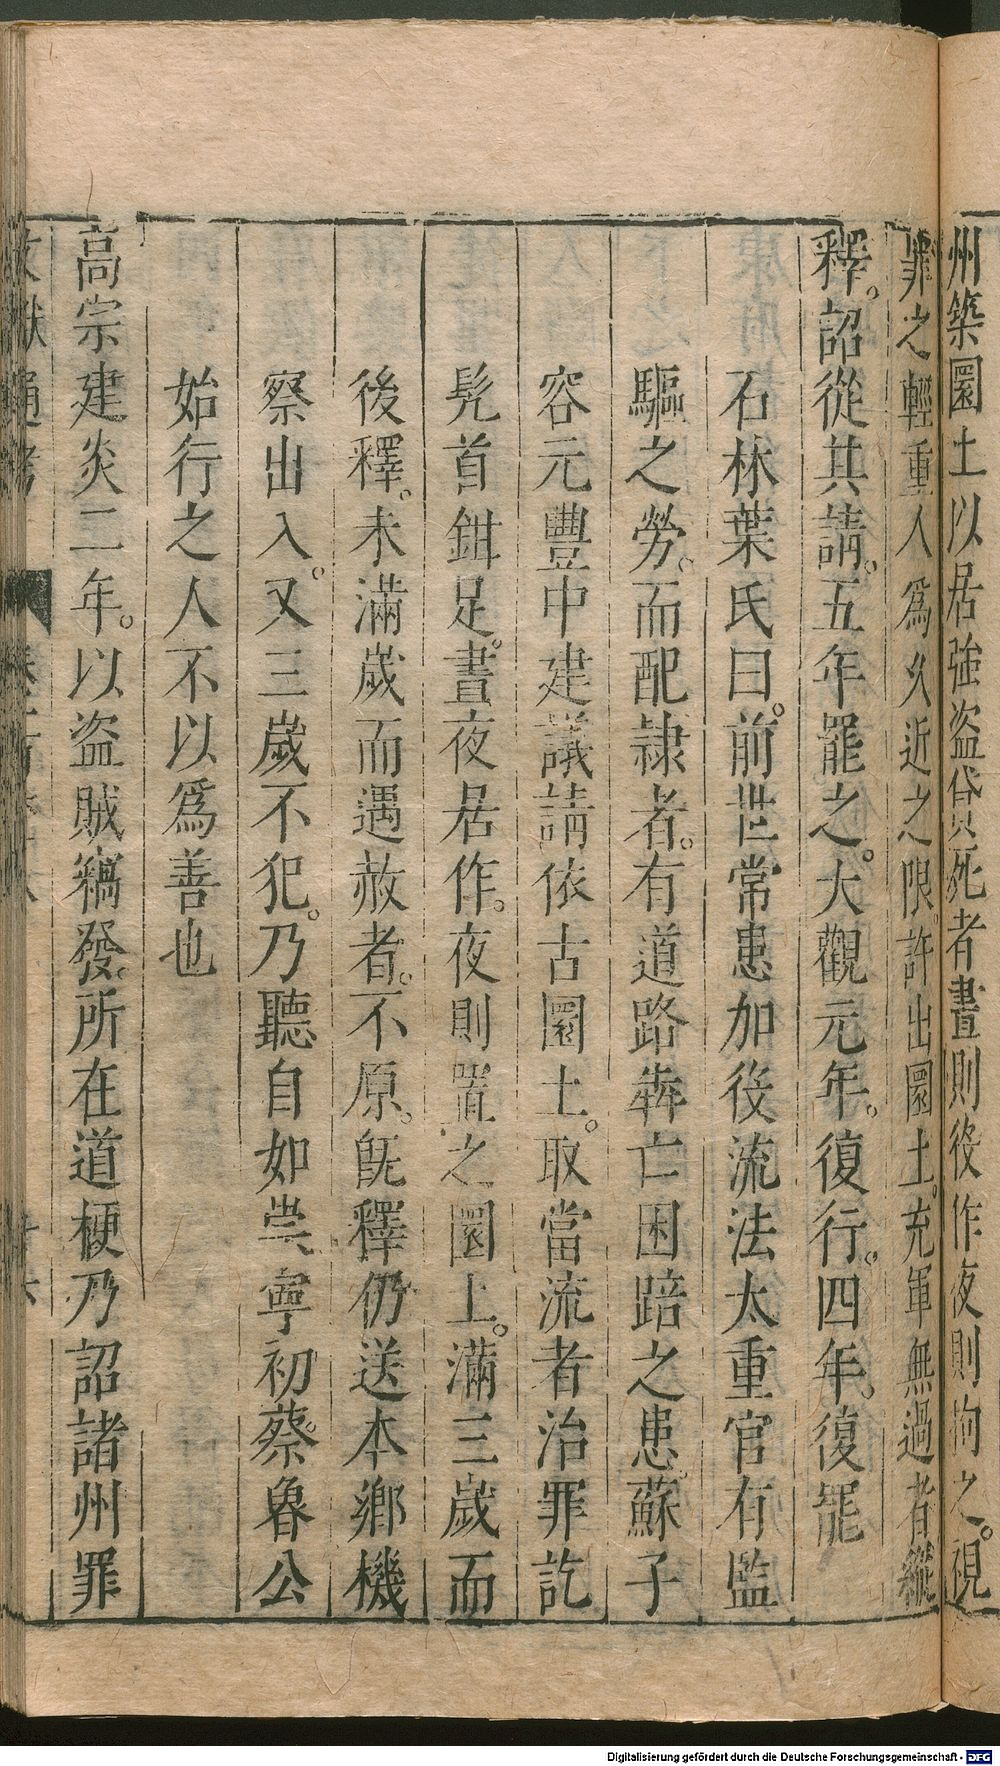 州築圜土以居強盜貸死者晝則役作夜則拘之。視
罪之輕重人爲久近之限。許出圜土。充軍無過者縱
釋。詔從其請。五年罷之。大觀元年。復行。四年。復罷
石林葉氏曰。前世常患加役流法太重官有監
驅之勞。而配隷者。有道路犇亡困踣之患。蘇子
容元豐中建議請依古圜土。取當流者治罪訖
髡首鉗足。晝夜居作。夜則置之圜土。滿三歲而
後釋。未滿歲而遇赦者。不原。旣釋仍送本鄉機
察出入。又三歲不犯。乃聽自如崇寧初。蔡魯公
始行之人不以爲善也
高宗建炎二年。以盜賊竊發。所在道梗乃詔諸州罪
文獻通考
Digitalisierung gefördert durch die Deutsche Forschungsgemeinschaft - DFG